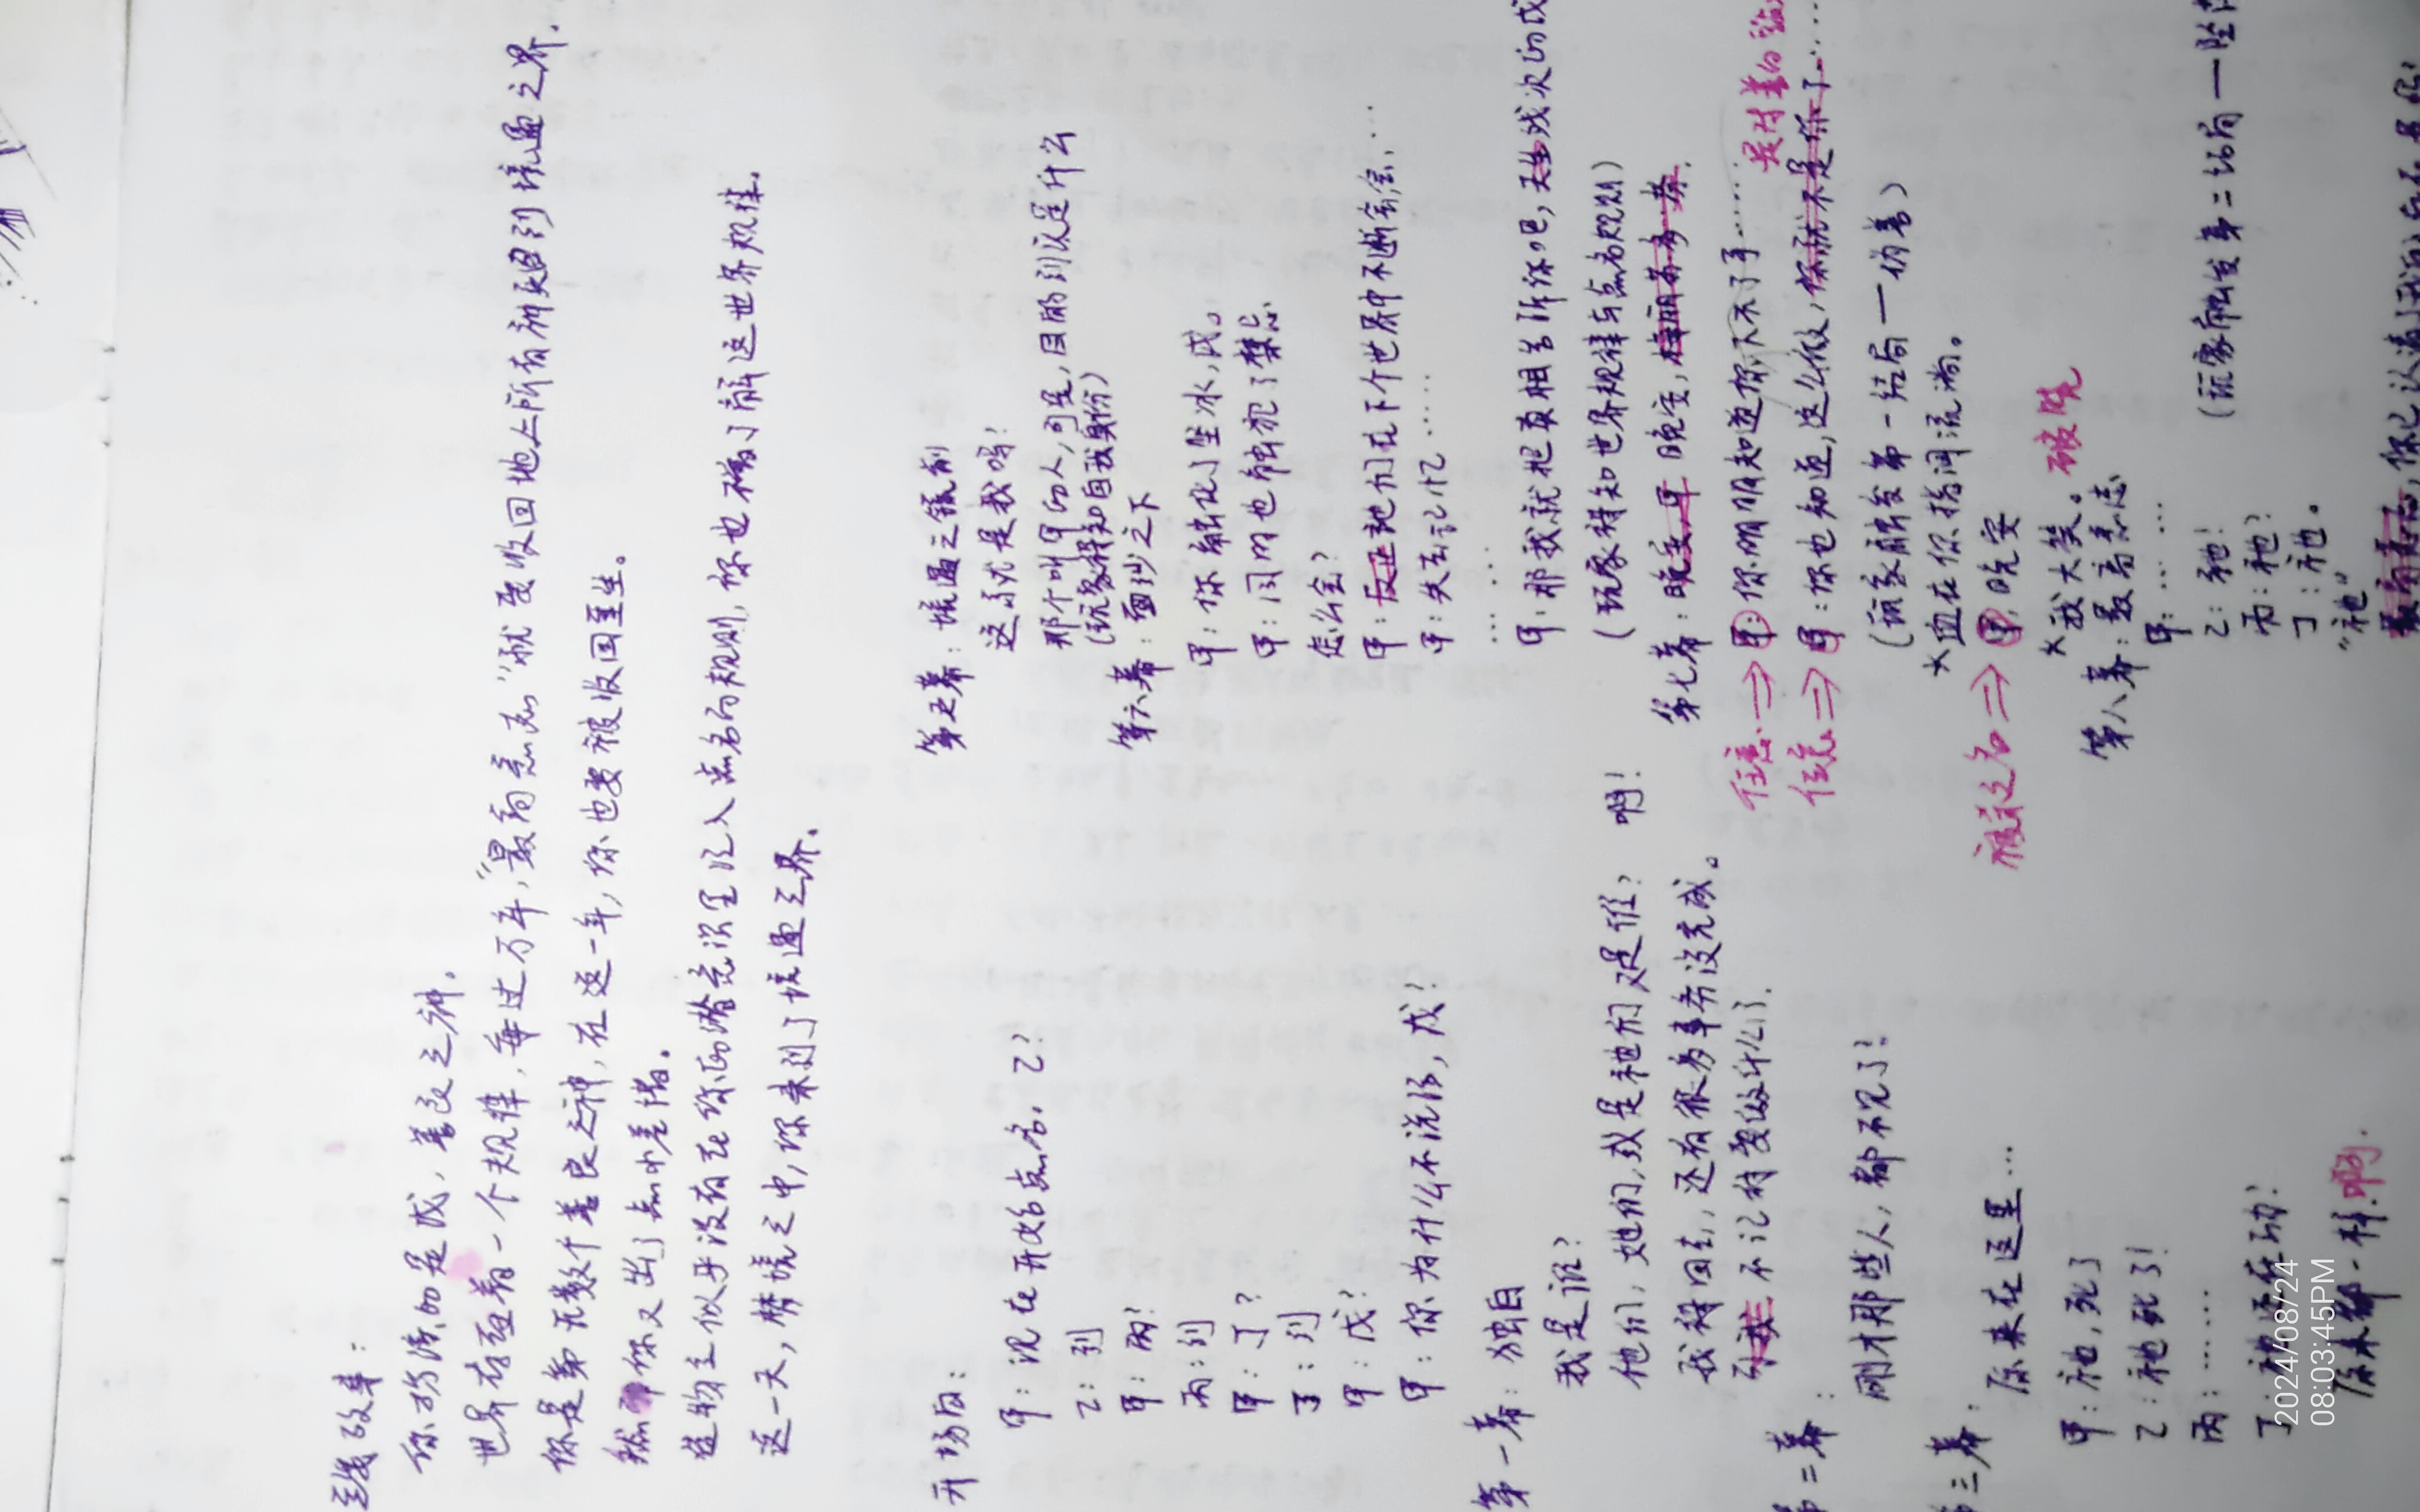 主线故事：
你扮演的是戊，善良之神。
世界存在着一个规律，每过万年，“最高意志”就要收回地上所有神到境遇之界。
你是第无数个善良之神，在这一年，你也要被收回重生。
然而你又出了点小差错。
造物主似乎没有在你的潜意识里注入点名的规则，你也不了解这世界规律。
这一天，梦境之中，你来到了境遇之界。
开场白：
甲：现在开始点名。乙？
乙：到
甲：丙？
丙：到
甲：丁？
丁：到
甲：戊？
甲：你为什么不说话，戊？
第一幕：独白
我是谁？
他们，她们，或是祂们又是谁？ 啊！
我得回去，还有很多事务没完成。
不记得要做什么了。
第二幕：
刚才那些人，都不见了？
第三幕：
原来在这里…
甲：祂，死了
乙：祂死了！
丙：……
丁：祂还在动？
原来都一样啊。
第五幕：境遇之镜前
这就是我吗！
那个叫甲的人，可是，目的到底是什么
(玩家得知自我身份)
第六幕：面纱之下
甲：你融化了坚冰，戊。
甲：同时也触犯了禁忌
怎么会？
甲：反正祂们在下个世界中不断会会…
甲：失去记忆……
… …
甲：那我就把真相告诉你吧，天生残次的戊
(玩家得知世界规律与点名规则)
第七幕：晚安，甲 晚安，梅丽苏多·蒂.
任意⇒ 甲：你明明知道你下不了手……
是对善的
任意⇒ 甲：你也知道，这么做，你就不是你了……
(玩家触发第一结局—伪善)
*血在你指间流淌。
被杀之名⇒ 甲，晚安
*我大笑。破晓
第八幕：最高意志
甲：… …
乙：祂！
(玩家触发第二结局—坠
丙：祂？
丁：祂。
“祂”
最高意志，你已认清了我
2024/08/24
08:03:45PM